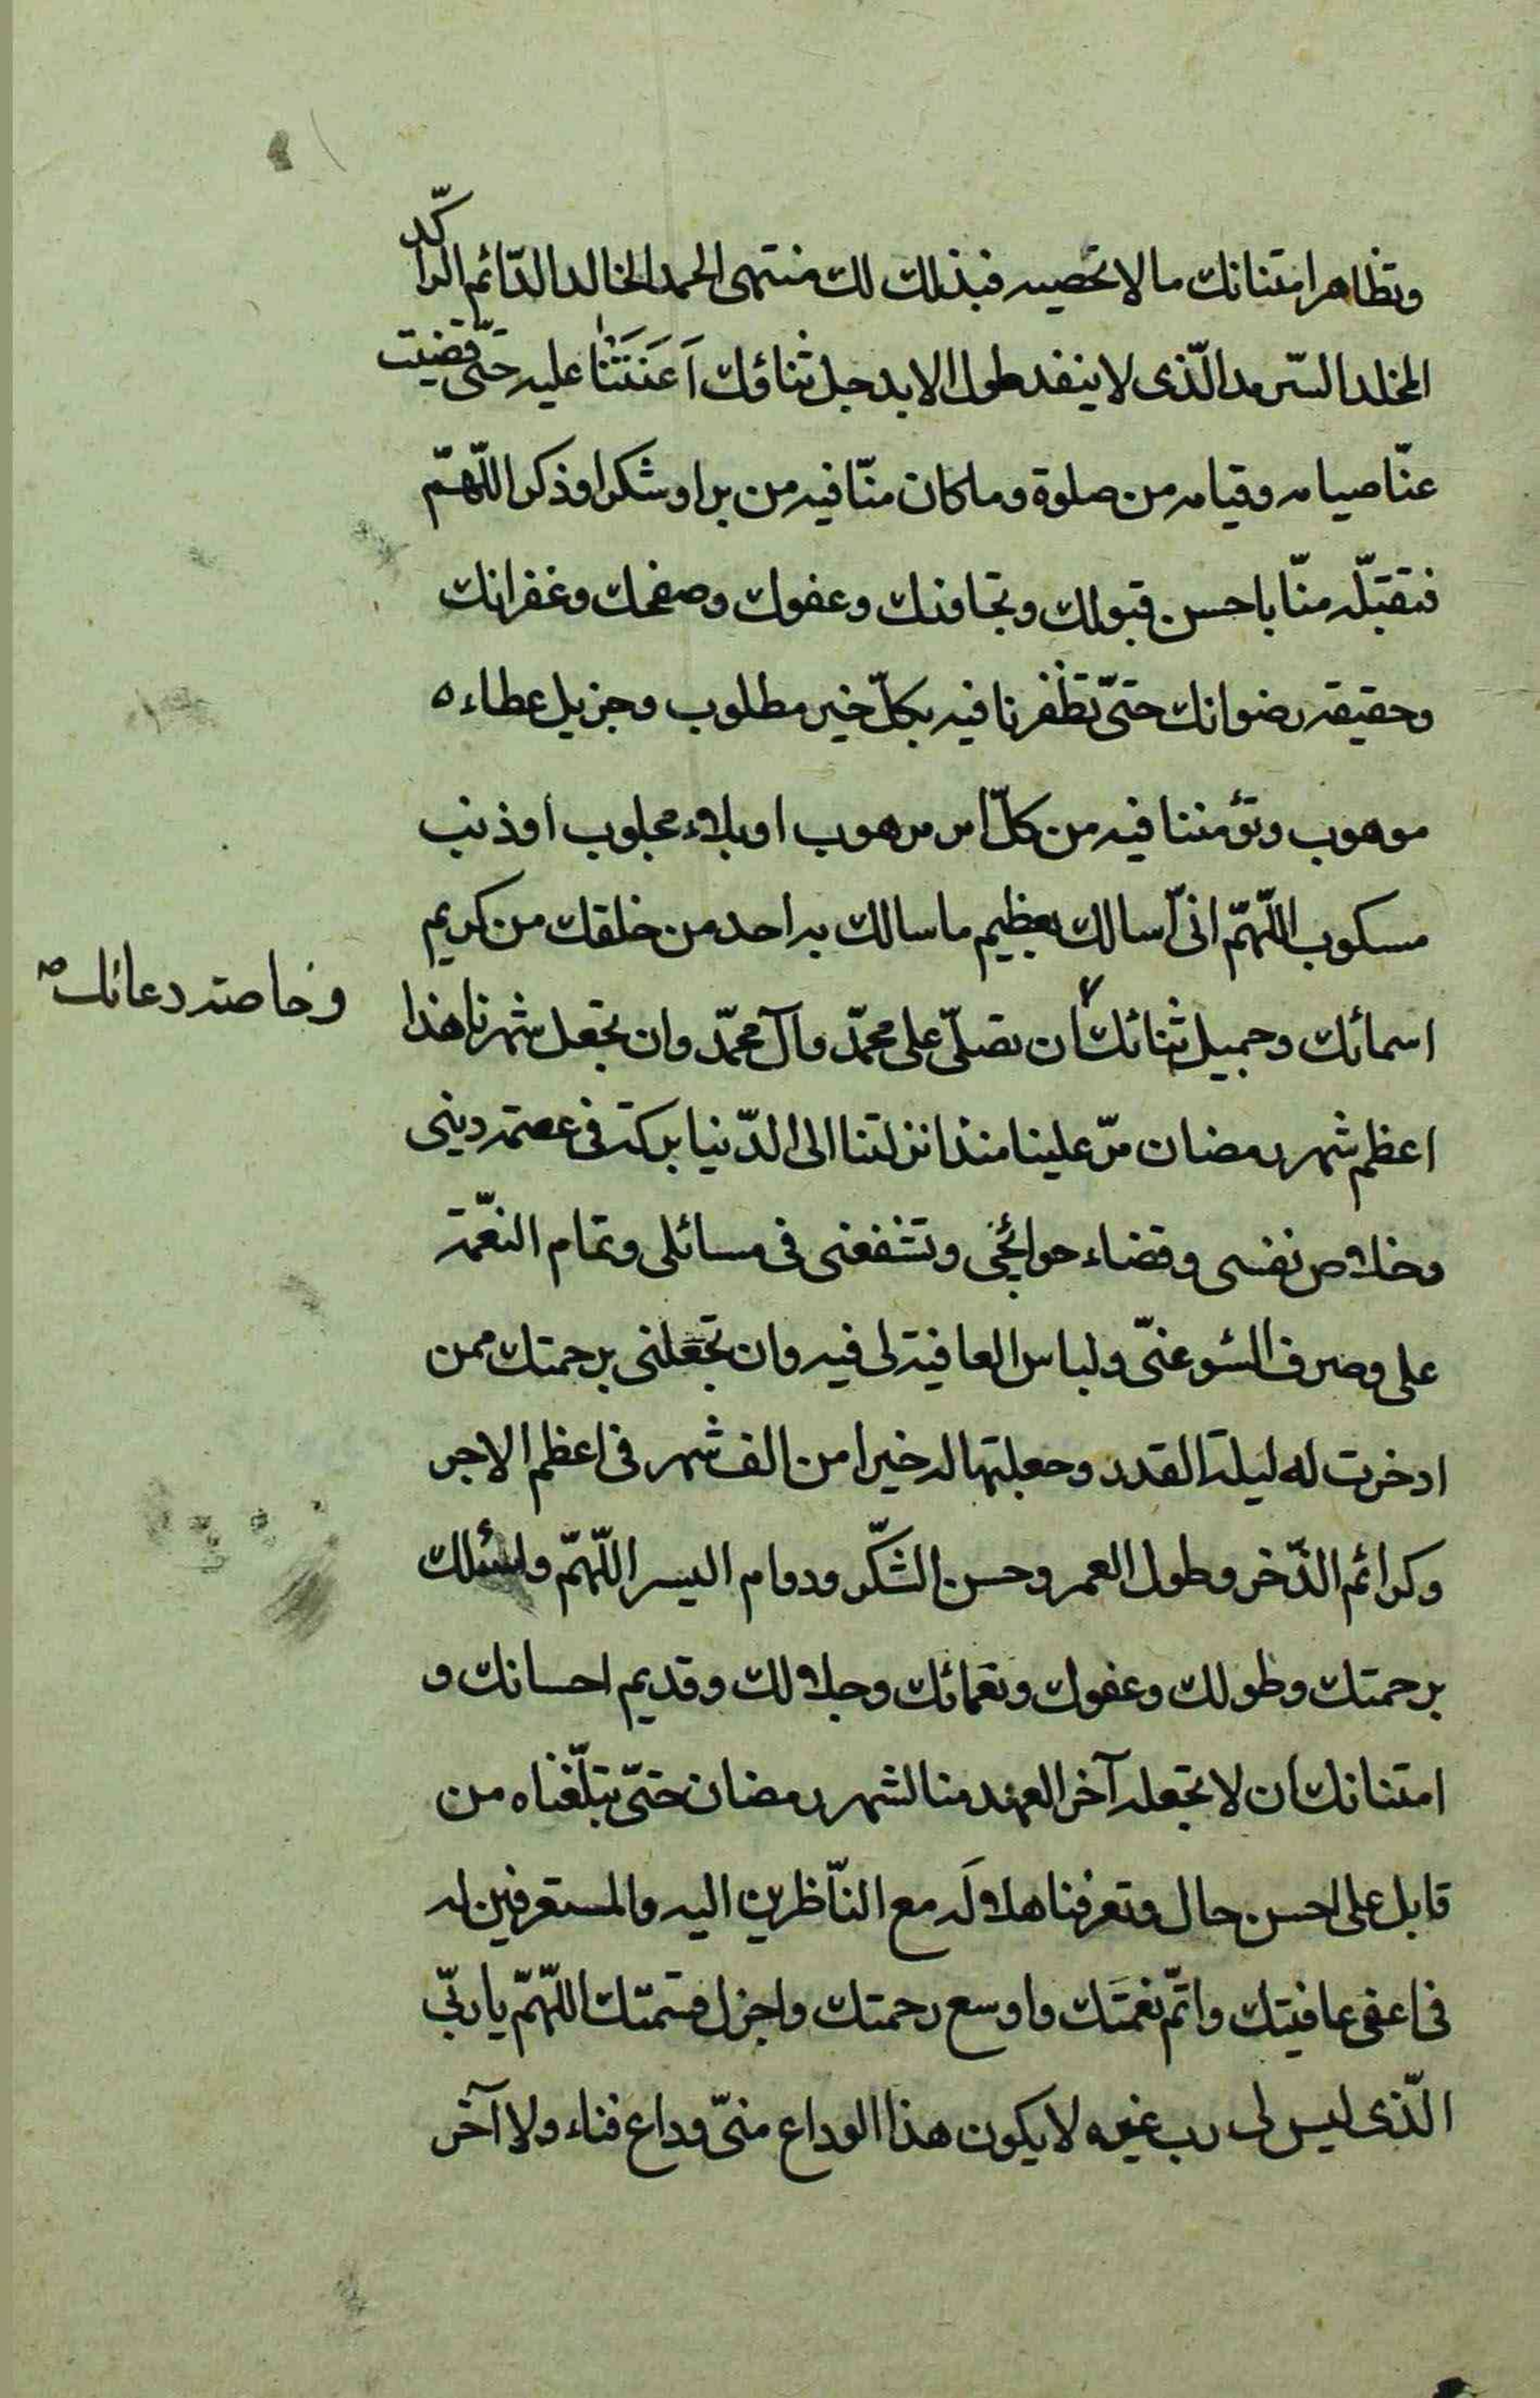 وتظاهر امتنانك ما لا نحصيه فبذلك لك منتهى الحمد الخالد الدّائم الراكّد
المخلد السّرمد الّذى لا ينفد طول الابد جل ثناؤك اَعَنَتَنٰا عليه حتّى قضيت
عنّا صيامه وقيامه من صلوة وما كان منّا فيه من بر او شكر او ذكر اللّهمّ
فتقبّله منّا باحسن قبولك وتجاوزك وعفوك وصفحك وغفرانك
وحقيقة رضوانك حتىّ تظفرنا فيه بكلّ خير مطلوب وجزيل عطاء ه
موهوب وتؤمننا فيه من كلّ امر مرهوب او بلاء مجلوب او ذنب
مسكوب اللّهمّ انىّ اسالك بعظيم ما سالك به احد من خلقك من كريم
اسمائك وجميل ثنائك ان تصلّى على محمّد وآل محمّد وان تجعل شهرنا هذا
وخاصة دعائك صح
اعظم شهر رمضان مرّ علينا منذ انزلتنا الى الدّنيا بركة فى عصمة دينى
وخلاص نفسى وقضاء حوائجى وتشفعنى فى مسائلى وتمام النعّمة
على وصرف السّوء عنىّ ولباس العافية لى فيه وان تجعلنى برحمتك ممن
ادخرت له ليلة القدر وجعلتها له خيرا من الف شهر فى اعظم الاجر
وكرائم الذّخر وطول العمر وحسن الشكّر ودوام اليسر اللّهمّ واسئلك
برحمتك وطولك وعفوك ونعمائك وجلالك وقديم احسانك و
امتنانك ان لا تجعله آخر العهد منا لشهر رمضان حتىّ تبلّغناه من
قابل على احسن حال وتعرفنا هلالَه مع النّاظرين اليه والمستعرفين له
فى اعفى عافيتك واتمّ نعمَتك واوسع رحمتك واجزل قسمتك اللّهمّ يا ربّى
الّذى ليس لى رب غيره لا يكون هذا الوداع منىّ وداع فناء ولا آخر